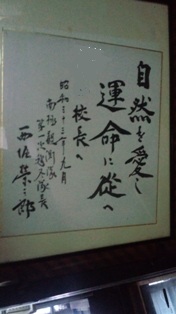 自然を愛し
運命に從へ
校長へ
昭和三十三年九月
南極観測隊
第一次越冬隊長
西堀榮三郎